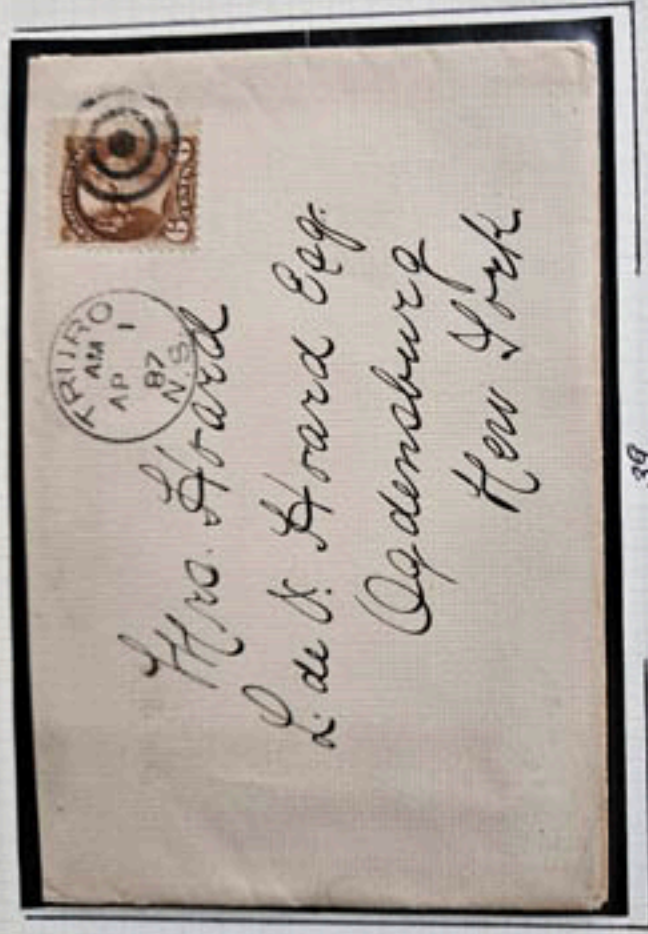 TRURO
AM
AP 1
87
N.S.
Mrs. Hoard
L. de V. Hoard Esq.
Ogdensburg
New York
39